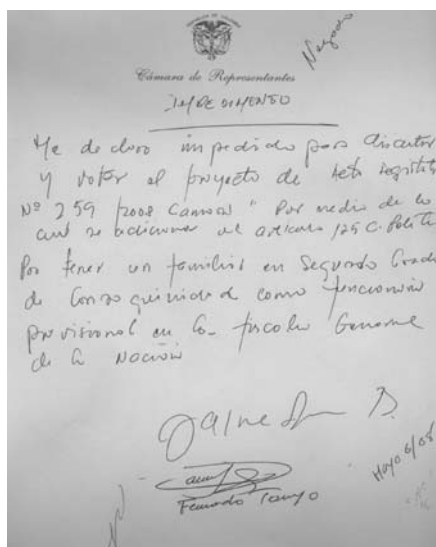 Negado
Cámara de Representantes
IMPEDIMENTO
Me declaro impedido para discutir
y votar el proyecto de Acto Legislat
Nº 259 2008 Camara " Por medio de la
cual se adiciona el artículo 125 C. Polít
Por tener un familiar en Segundo Grado
de Consaguinidad como funcionario
provisional en la fiscalia General
de la Nación
Jaime B.
Fernando Tamayo
Mayo 6/08